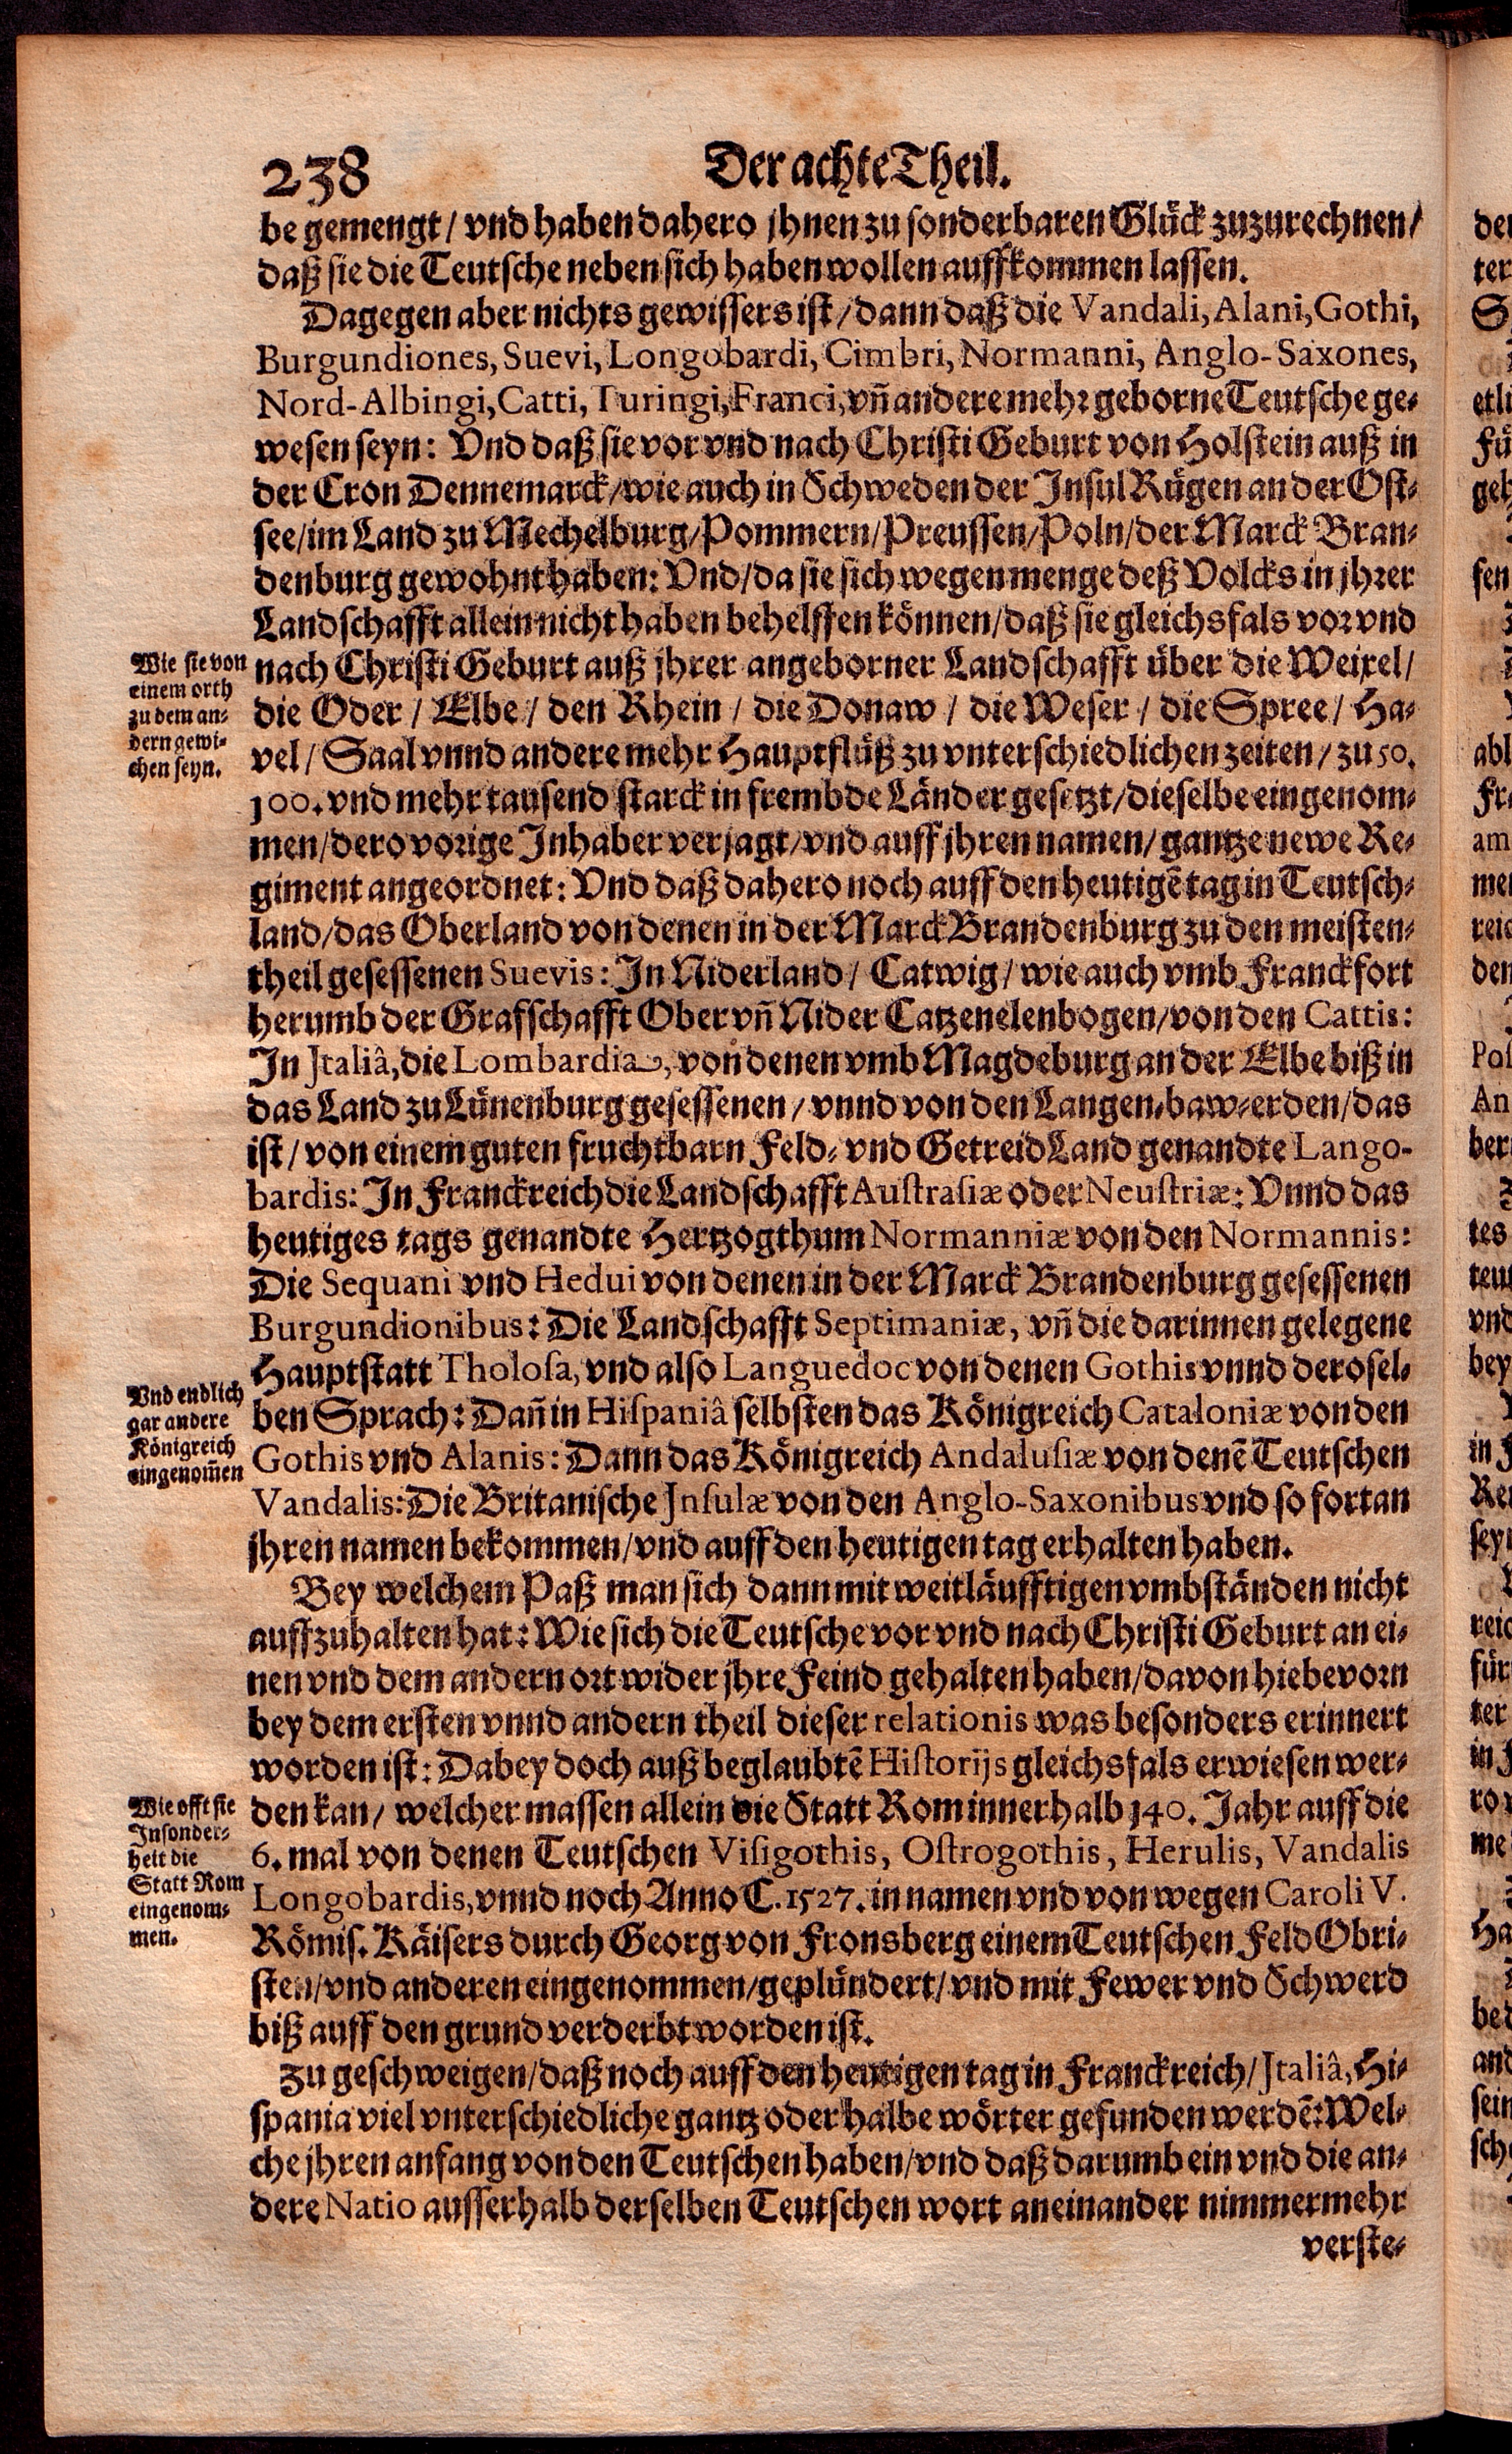 238
Der achte Theil.
be gemengt / vnd haben dahero jhnen zu sonderbaren Glück zuzurechnen /
daß sie die Teutsche neben sich haben wollen auffkommen lassen.
Dagegen aber nichts gewissers ist / dann daß die Vandali, Alani, Gothi,
Burgundiones, Suevi, Longobardi, Cimbri, Normanni, Anglo-Saxones,
Nord-Albingi, Catti, Turingi, Franci, vñ andere mehr geborne Teutsche ge-
wesen seyn: Vnd daß sie vor vnd nach Christi Geburt von Holstein auß in
der Cron Dennemarck / wie auch in Schweden der Insul Rügen an der Ost-
see / im Land zu Mechelburg / Pommern / Preussen / Poln / der Marck Bran-
denburg gewohnt haben: Vnd / da sie sich wegen menge deß Volcks in jhrer
Landschafft allein nicht haben behelffen können / daß sie gleichsfals vor vnd
Wie sie von
einem orth
zu dem an-
dern gewi-
chen seyn.
nach Christi Geburt auß jhrer angeborner Landschafft über die Weixel /
die Oder / Elbe / den Rhein / die Donaw / die Weser / die Spree / Ha-
vel / Saal vnnd andere mehr Hauptflüß zu vnterschiedlichen zeiten / zu 50.
100. vnd mehr tausend starck in frembde Länder gesetzt / dieselbe eingenom-
men / dero vorige Inhaber verjagt / vnd auff jhren namen / gantze newe Re-
giment angeordnet: Vnd daß dahero noch auff den heutigē tag in Teutsch-
land / das Oberland von denen in der Marck Brandenburg zu den meisten-
theil gesessenen Suevis: In Niderland / Catwig / wie auch vmb Franckfort
herumb der Grafschafft Ober vñ Nider Catzenelenbogen / von den Cattis:
In Italiâ, die Lombardia, von denen vmb Magdeburg an der Elbe biß in
das Land zu Lünenburg gesessenen / vnnd von den Langen-baw-erden / das
ist / von einem guten fruchtbarn Feld- vnd Getreid Land genandte Lango-
bardis: In Franckreich die Landschafft Austrasiæ oder Neustriæ: Vnnd das
heutiges tags genandte Hertzogthum Normanniæ von den Normannis:
Die Sequani vnd Hedui von denen in der Marck Brandenburg gesessenen
Burgundionibus: Die Landschafft Septimaniæ, vñ die darinnen gelegene
Hauptstatt Tholosa, vnd also Languedoc von denen Gothis vnnd derosel-
Vnd endlich
gar andere
Königreich
eingenom̄en
ben Sprach: Dañ in Hispaniâ selbsten das Königreich Cataloniæ von den
Gothis vnd Alanis: Dann das Königreich Andalusiæ von denē Teutschen
Vandalis: Die Britanische Insulæ von den Anglo-Saxonibus vnd so fortan
jhren namen bekommen / vnd auff den heutigen tag erhalten haben.
Bey welchem Paß man sich dann mit weitläufftigen vmbständen nicht
auffzuhalten hat: Wie sich die Teutsche vor vnd nach Christi Geburt an ei-
nen vnd dem andern ort wider jhre Feind gehalten haben / davon hiebevorn
bey dem ersten vnnd andern theil dieser relationis was besonders erinnert
worden ist: Dabey doch auß beglaubtē Historijs gleichsfals erwiesen wer-
Wie offt sie
Insonder-
heit die
Statt Rom
eingenom-
men.
den kan / welcher massen allein die Statt Rom innerhalb 140. Jahr auff die
6. mal von denen Teutschen Visigothis, Ostrogothis, Herulis, Vandalis
Longobardis, vnnd noch Anno C. 1527. in namen vnd von wegen Caroli V.
Römis. Käisers durch Georg von Fronsberg einem Teutschen Feld Obri-
sten / vnd anderen eingenommen / geplündert / vnd mit Fewer vnd Schwerd
biß auff den grund verderbt worden ist.
Zu geschweigen / daß noch auff den heutigen tag in Franckreich / Italiâ, Hi-
spania viel vnterschiedliche gantz oder halbe wörter gefunden werdē: Wel-
che jhren anfang von den Teutschen haben / vnd daß darumb ein vnd die an-
dere Natio ausserhalb derselben Teutschen wort aneinander nimmermehr
verste-